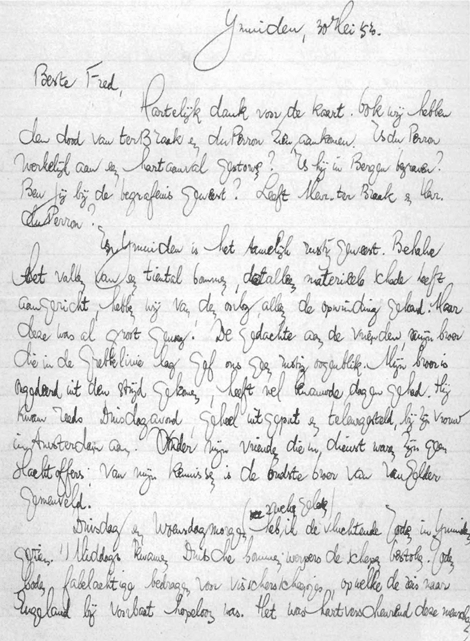 Ymuiden, 30 Mei '53.
Beste Fred,
Hartelijk dank voor de kaart. Ook wij hebben
den dood van ter Braak en du Perron zien aankomen. Is du Perron
werkelijk aan een hartaanval gestorven? Is hij in Bergen begraven?
Ben jij bij de begrafenis geweest? Leeft Mevr. ter Braak en Mevr.
du Perron?
In Ymuiden is het tamelijk rustig geweest. Behalve
het vallen van een tiental bommen, dat alleen materieele schade heeft
aangericht, hebben wij van den oorlog alleen de opwinding gehad. Maar
deze was al groot genoeg! De gedachte aan de vrienden, mijn broer
die in de Grebbelinie lag, gaf ons geen rustig oogenblik. Mijn broer is
ongedeerd uit den strijd gekomen, heeft wel benauwde dagen gehad. Hij
kwam reeds Dinsdagavond geheel uitgeput en teleurgesteld bij zijn vrouw
in Amsterdam aan. Onder mijn vrienden die in dienst waren zijn geen
slachtoffers: van mijn kennissen is de oudste broer van Van Gelder
gesneuveld.
Dinsdag en Woensdagmorgen heb ik de vluchtende Joden in Ymuiden
gezien. 's Middags kwamen Duitsche bommenwerpers de schepen bestoken. Joden
boden fabelachtige bedragen voor visscherscheepjes, op welke de reis naar
Engeland bij voorbaat hopeloos was. Het was hartverscheurend deze menschen